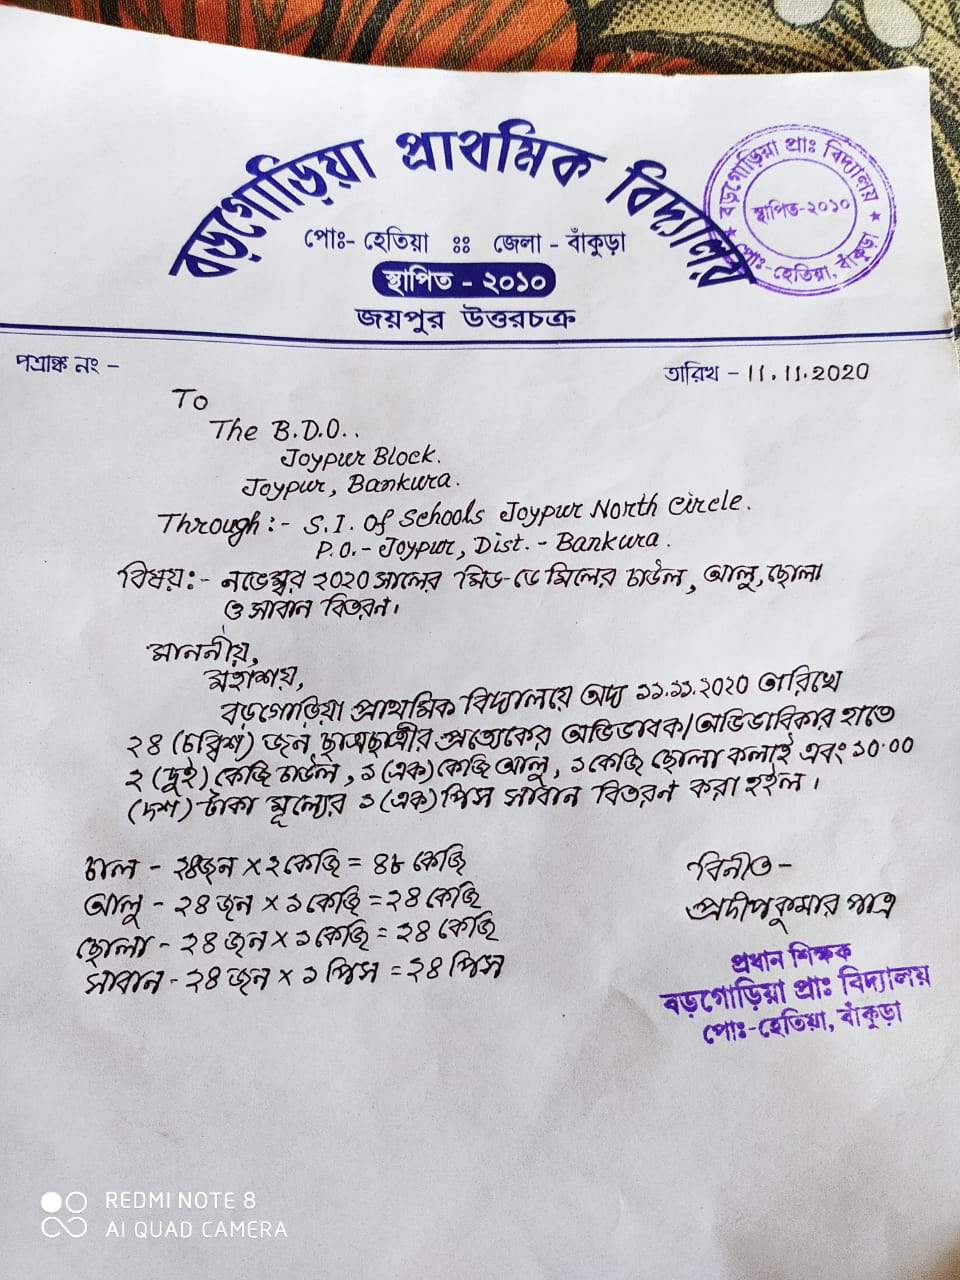 বড়গোড়িয়া প্রাথমিক বিদ্যালয়
পোঃ- হেতিয়া ঃঃ জেলা - বাঁকুড়া
স্থাপিত - ২০১০
জয়পুর উত্তরচক্র
বড়গোড়িয়া প্রাঃ বিদ্যালয়
স্থাপিত-২০১০
★ পোঃ-হেতিয়া, বাঁকুড়া ★
পত্রাঙ্ক নং -
তারিখ - 11.11.2020
To
The B.D.O..
Joypur Block.
Joypur, Bankura.
Through:- S.I. of Schools Joypur North Circle.
P.O.- Joypur, Dist. - Bankura.
বিষয়:- নভেম্বর ২০২০ সালের মিড-ডে মিলের চাউল, আলু, ছোলা
ও সাবান বিতরন।
মাননীয়,
মহাশয়,
বড়গোড়িয়া প্রাথমিক বিদ্যালয়ে অদ্য ১১.১১.২০২০ তারিখে
২৪ (চব্বিশ) জন ছাত্রছাত্রীর প্রত্যেকের অভিভাবক/অভিভাবিকার হাতে
২ (দুই) কেজি চাউল, ১ (এক) কেজি আলু, ১ কেজি ছোলা কলাই এবং ১০.০০
(দশ) টাকা মূল্যের ১ (এক) পিস সাবান বিতরন করা হইল।
চাল - ২৪জন × ২ কেজি = ৪৮ কেজি
আলু - ২৪ জন × ১ কেজি = ২৪ কেজি
ছোলা - ২৪ জন × ১ কেজি = ২৪ কেজি
সাবান - ২৪ জন × ১ পিস = ২৪ পিস
বিনীত -
প্রদীপকুমার পাত্র
প্রধান শিক্ষক
বড়গোড়িয়া প্রাঃ বিদ্যালয়
পোঃ-হেতিয়া, বাঁকুড়া
REDMI NOTE 8
AI QUAD CAMERA